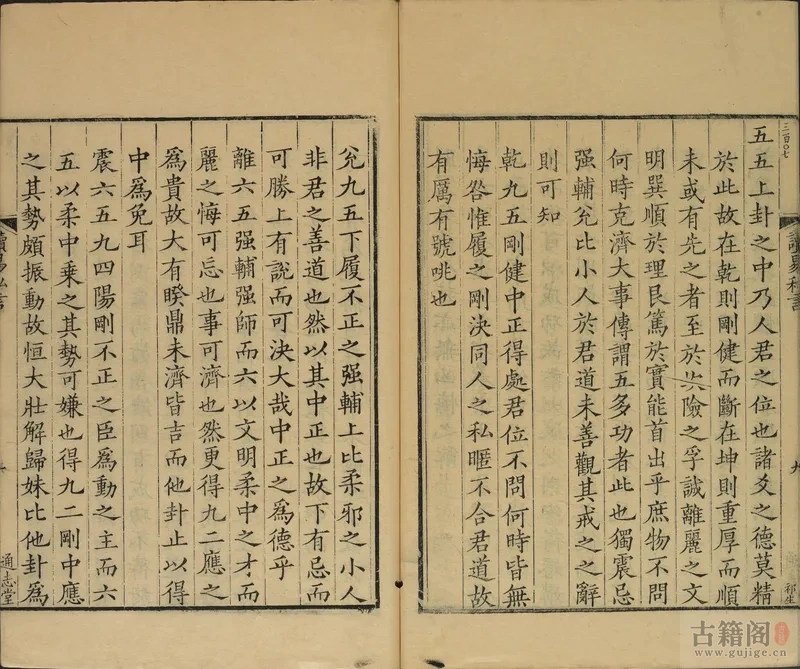 三百〇七
五五上卦之中乃人君之位也諸爻之德莫精
於此故在乾則剛健而斷在坤則重厚而順
未或有先之者至於坎險之孚誠離麗之文
明巽順於理艮篤於實能首出乎庶物不問
何時克濟大事傳謂五多功者此也獨震忌
强輔兊比小人於君道未善觀其戒之之辭
則可知
乾九五剛健中正得處君位不問何時皆無
悔咎惟履之剛決同人之私暱不合君道故
有厲有號咷也
讀易私書
九
祁生
兊九五下履不正之强輔上比柔邪之小人
非君之善道也然以其中正也故下有忌而
可勝上有說而可決大哉中正之爲德乎
離六五强輔强師而六以文明柔中之才而
麗之悔可忘也事可濟也然更得九二應之
爲貴故大有睽鼎未濟皆吉而他卦止以得
中爲免耳
震六五九四陽剛不正之臣爲動之主而六
五以柔中乘之其勢可嫌也得九二剛中應
之其勢頗振動故恒大壯解歸妹比他卦爲
讀易私書
通志堂
古籍阁
www.gujige.cn